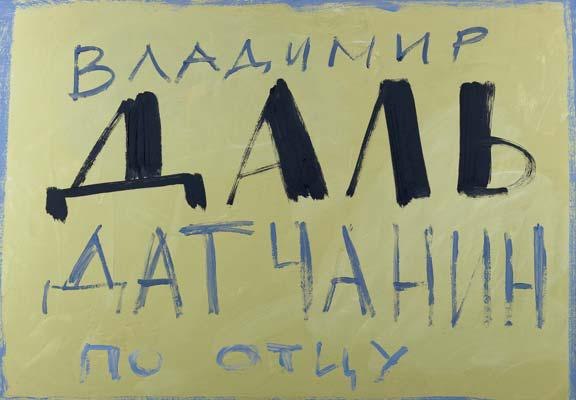 ВЛАДИМИР
ДАЛЬ
ДАТЧАНИН
ПО ОТЦУ